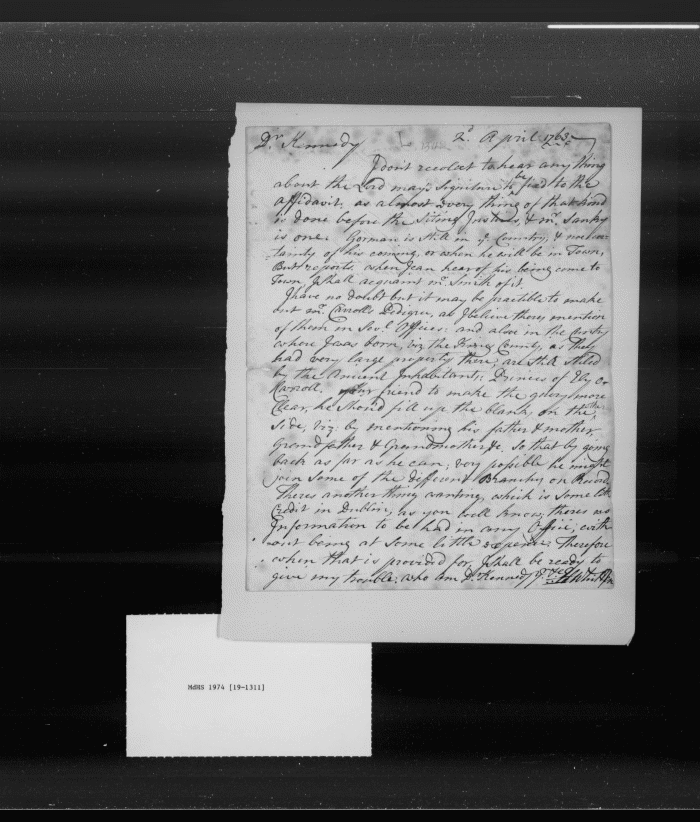 Dr. Kennedy 2d. April 1763
I dont recolect to hear any thing
about the Lord mayrs. Signature to be fixd to the
affidavit, as almost every thing of that kind
is done before the Siting Justices, & mr. Sankey
is one. Gorman is still in ye. Country, & uncer=
tainty of his coming, or when he will be in Town,
But reports, when I can hear of his being come to
Town I shall acquaint mr. Smith of it.
I have no doubt but it may be practible to make
out mr. Carrolls Pedigree, as I believe theres mention
of them in Sevl. Offices: and also in the
where I was born, viz the Kings County, as they
had very large property there, are still stiled
by the Ancient Inhabitants; Princes of Ely O
Karroll. your friend to make the more
Clear, he should fill up the blank, on the other
side, viz: by mentioning his father & mother,
Grandfather & Grandmother &c. so that by going
back as far as he can, very posible he might
join some of the different Branches on Record,
Theres another thing wanting, which is some little
Credit in Dublin, as you well know, theres no
Information to be had in any Office, with
out being at some little expence. Therefore
when that is provided for, I shall be ready to
give my trouble, who am Dr. Kennedy
MdHS 1974 [19-1311]